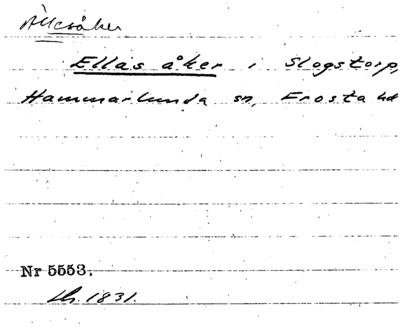 Ellas åker i Slogstorp,
Hammarlunda sn, Frosta hd
Nr 5553.
1831.